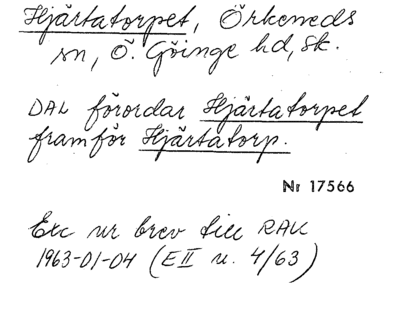 Hjärtatorpet, Örkeneds
sn, Ö. Göinge hd, Sk.
DAL förordar Hjärtatorpet
framför Hjärtatorp.
Nr 17566
Exc ur brev till RAK
1963-01-04 (E II u. 4/63)